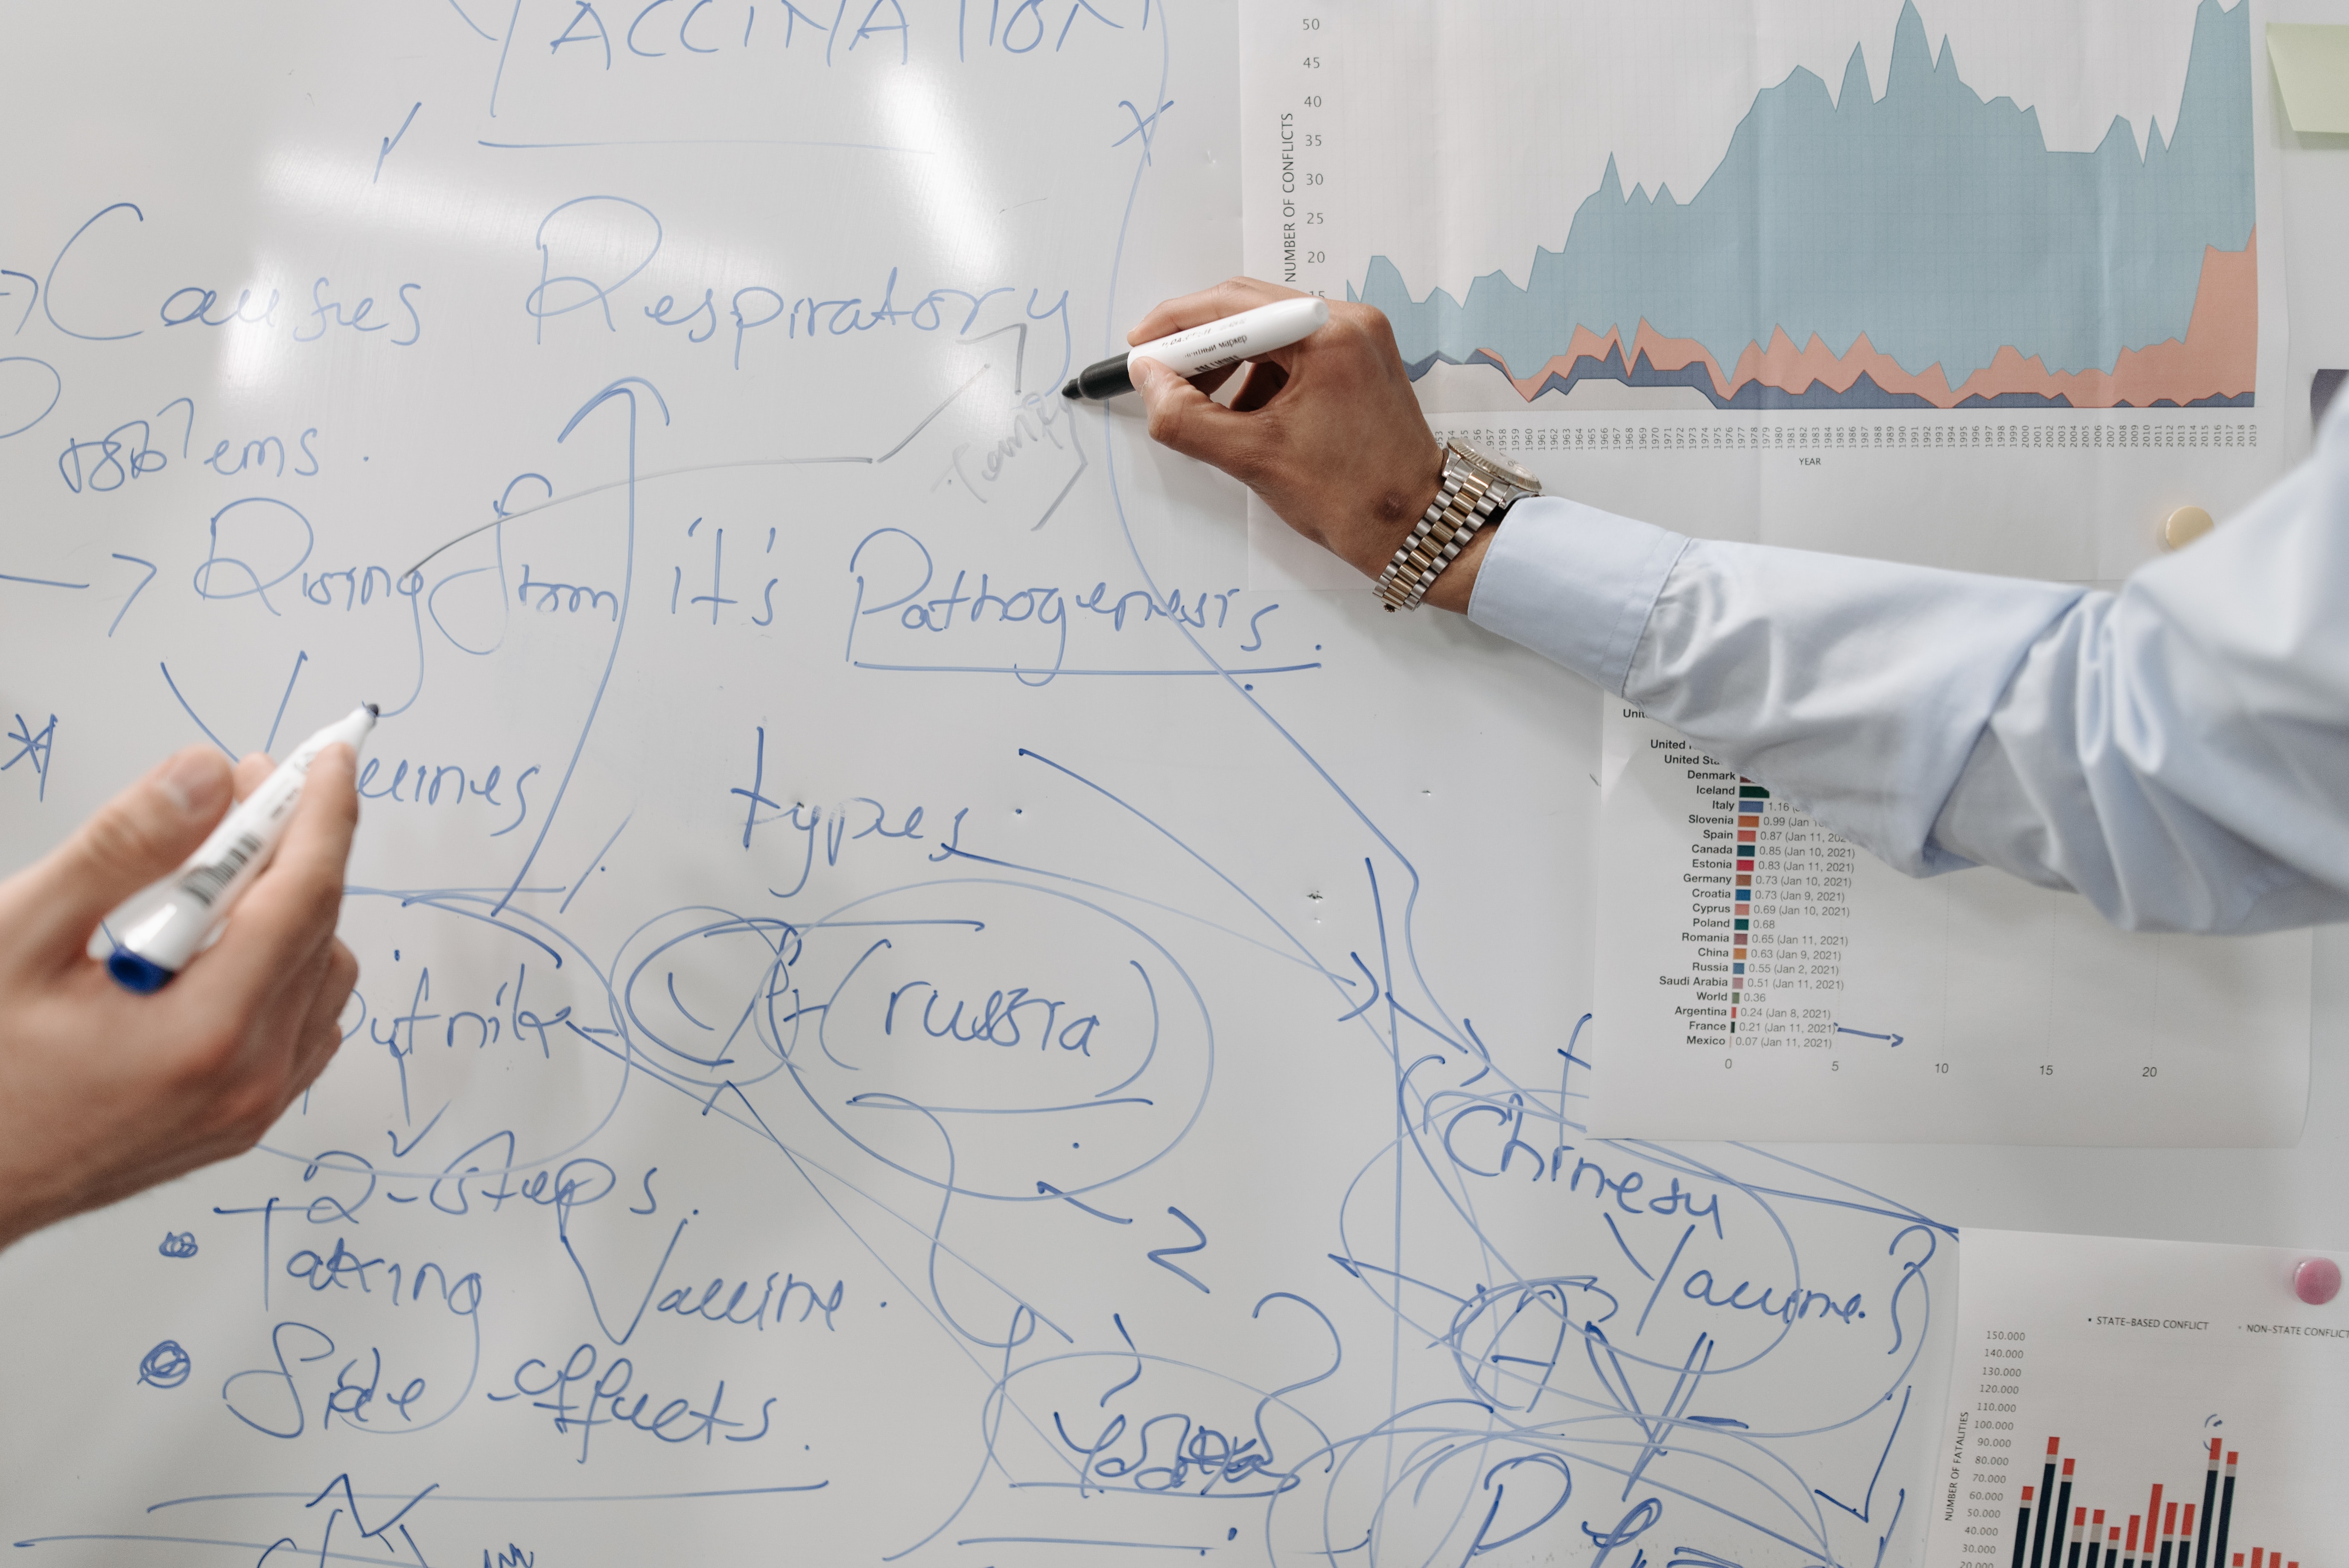 VACCINATION
→ Causes Respiratory
Problems.
→ Rising from it's Pathogenesis.
types.
(russia)
2-Steps.
Taking Vaccine.
Side effects.
2
Chinese
Vaccine.
?
50
45
40
35
30
25
20
15
NUMBER OF CONFLICTS
1957 1958 1959 1960 1961 1962 1963 1964 1965 1966 1967 1968 1969 1970 1971 1972 1973 1974 1975 1976 1977 1978 1979 1980 1981 1982 1983 1984 1985 1986 1987 1988 1989 1990 1991 1992 1993 1994 1995 1996 1997 1998 1999 2000 2001 2002 2003 2004 2005 2006 2007 2008 2009 2010 2011 2012 2013 2014 2015 2016 2017 2018 2019
YEAR
маркер
United
Denmark
Iceland
Italy 1.16
Slovenia 0.99 (Jan
Spain 0.87 (Jan 11, 2021
Canada 0.85 (Jan 10, 2021)
Estonia 0.83 (Jan 11, 2021)
Germany 0.73 (Jan 10, 2021)
Croatia 0.73 (Jan 9, 2021)
Cyprus 0.69 (Jan 10, 2021)
Poland 0.68
Romania 0.65 (Jan 11, 2021)
China 0.63 (Jan 9, 2021)
Russia 0.55 (Jan 2, 2021)
Saudi Arabia 0.51 (Jan 11, 2021)
World 0.36
Argentina 0.24 (Jan 8, 2021)
France 0.21 (Jan 11, 2021)
Mexico 0.07 (Jan 11, 2021)
0 5 10 15 20
• STATE-BASED CONFLICT • NON-STATE CONFLICT
150.000
140.000
130.000
120.000
110.000
100.000
90.000
80.000
70.000
60.000
50.000
40.000
30.000
20.000
NUMBER OF FATALITIES